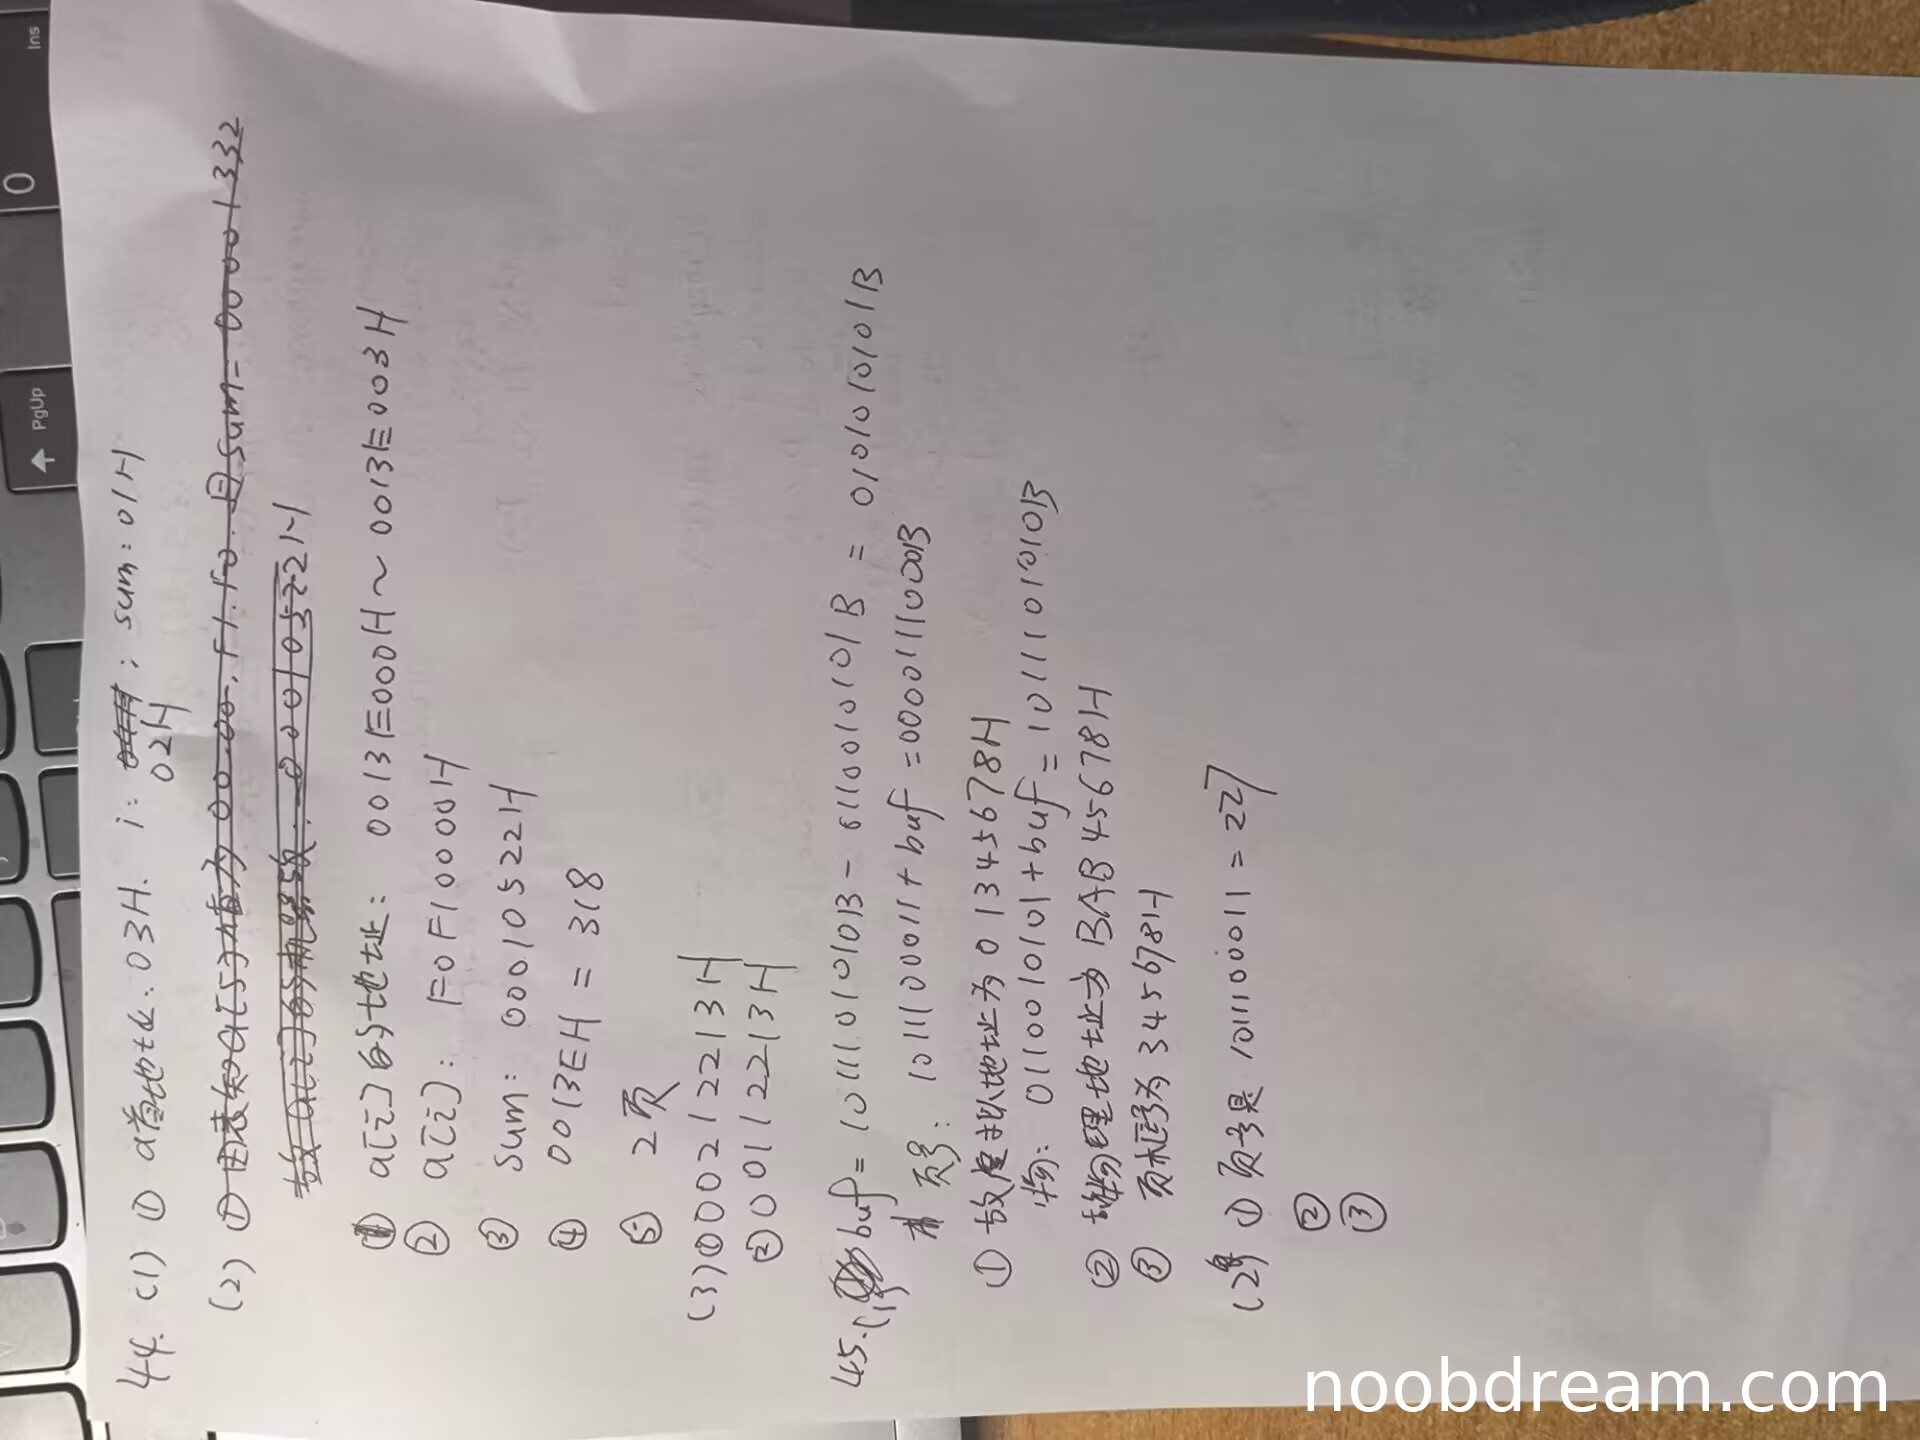 44. (1) ① a首地址: 03H. i: 02H ; sum: 01H
(2)
① a[i]的地址: 0013E000H ~ 0013E003H
② a[i]: F0F10000H
③ sum: 00010522H
④ 0013EH = 318
⑤ 2页
(3) ① 00021 2213H
② 0011 2213H
45. (1) buf = 1011101010B - 0110010101B = 0101010101B
页号: 1011100011 + buf = 0000111000B
① 故虚拟地址为 01345678H
物: 0110010101 + buf = 1011101010B
② 故物理地址为 BAB45678H
③ 页框号为 345678H
(2) ① 页号是 1011100011 = 227
②
③
Ins
0
PgUp
noobdream.com